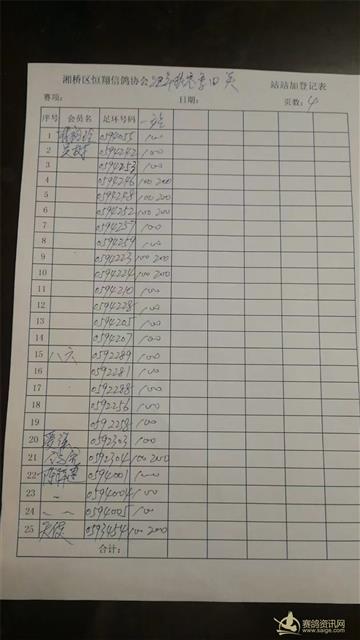 湘桥区恒翔信鸽协会 站站加登记表
赛项： 日期： 页数：4
序号 会员名 足环号码 一站
1 0594055 100
2 0594242 100
3 0594253 100
4 0594246 100 200
5 0594248 100 200
6 0594252 100 200
7 0594257 100
8 0594259 100
9 0594223 100 200
10 0594224 100 200
11 0594210 100
12 0594228 100
13 0594205 100
14 0594207 100
15 八六 0592289 100
16 0592281 100
17 0592288 100
18 0592256 100
19 0592258 100
20 0592303 100
21 0592304 100 200
22 0594001 100
23 ~ 0594004 100
24 ~ ~ 0594005 100
25 0593454 100 200
合计：
赛鸽资讯网
www.saige.com